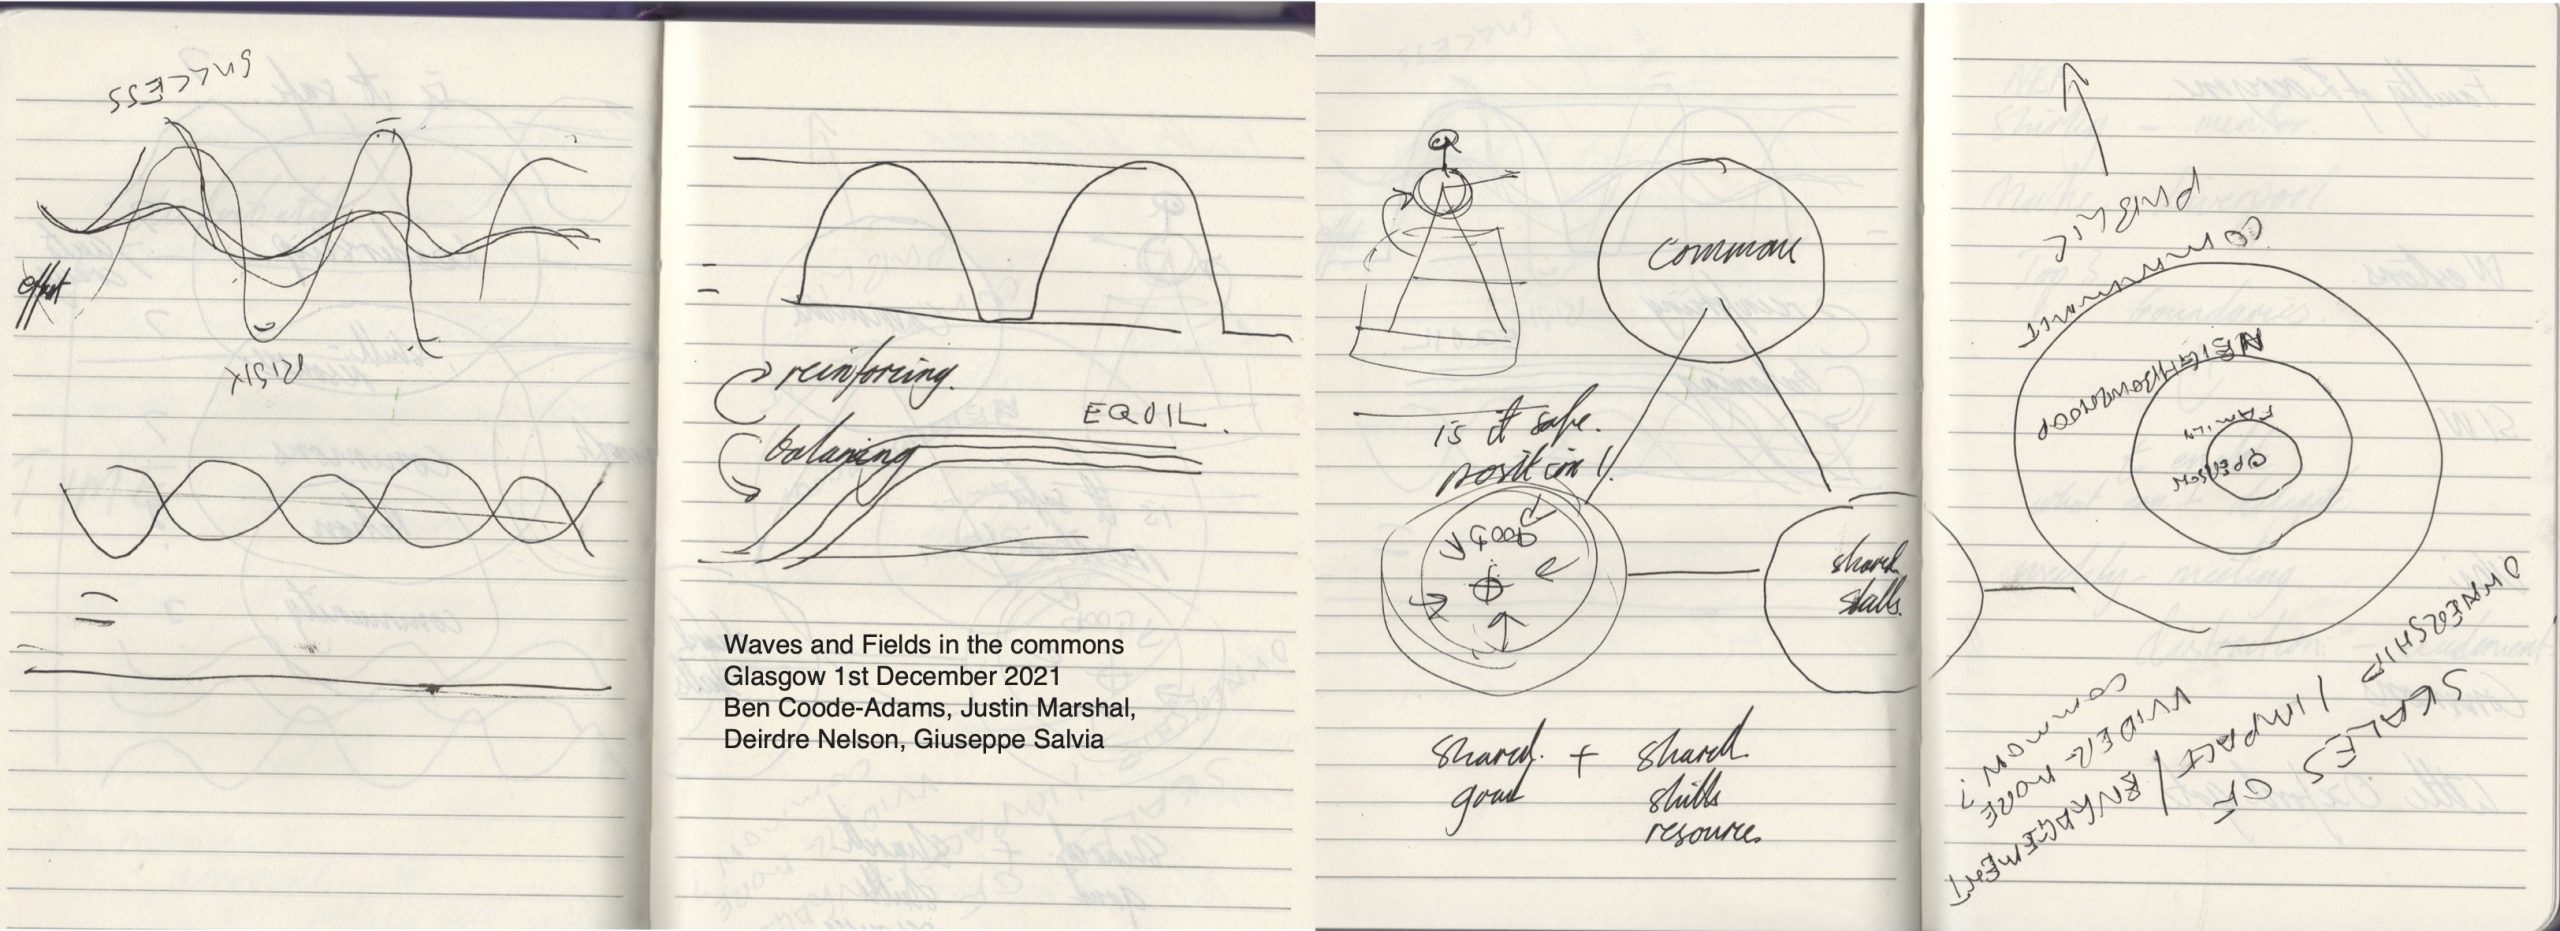 SUCCESS
effort
RISK
reinforcing.
EQUIL.
balancing
Waves and Fields in the commons
Glasgow 1st December 2021
Ben Coode-Adams, Justin Marshal,
Deirdre Nelson, Giuseppe Salvia
common
is it safe.
position!
GOOD
shared
skills.
shared
goal
+
shared
skills
resource
PUBLIC
COMMUNITY
NEIGHBOURHOOD
FAMILY
PERSON
OWNERSHIP
SCALES OF
IMPACT /
ENGAGEMENT
WIDER - MORE
COMMON?